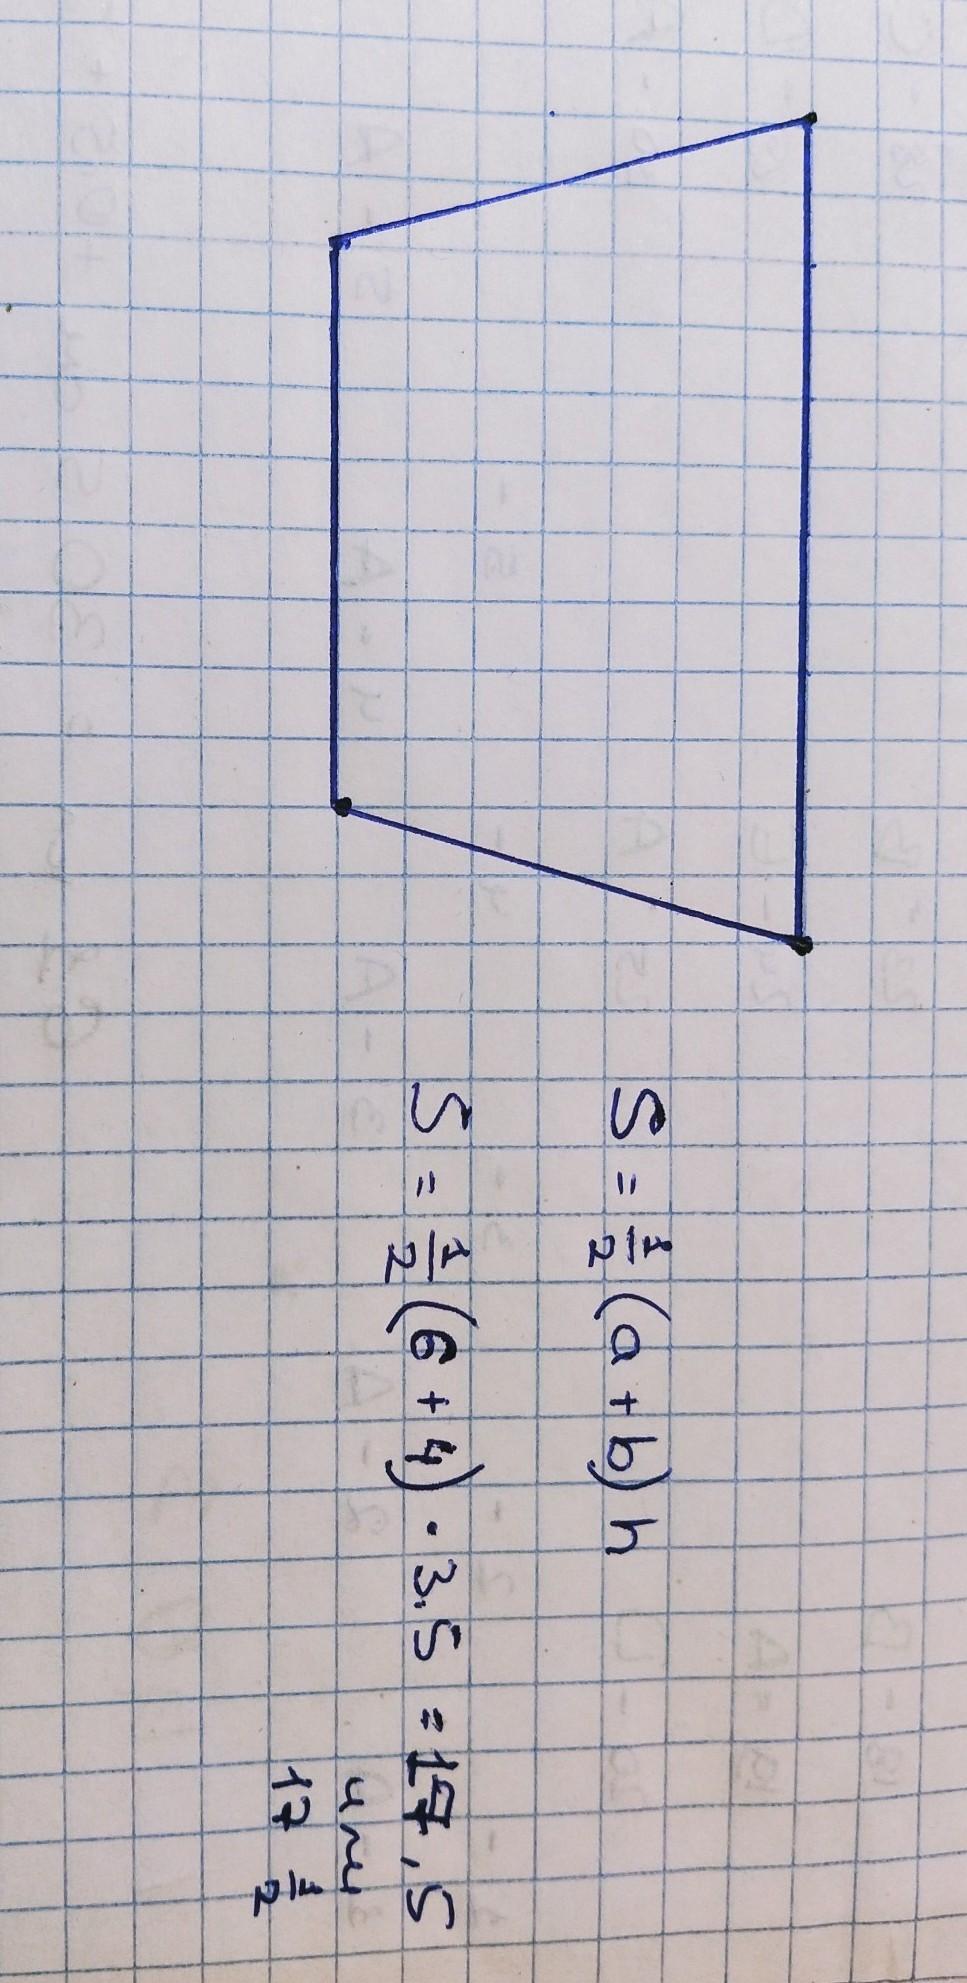 S = 1/2 (a + b) h
S = 1/2 (6 + 4) · 3.5 = 17,5
или
17 1/2